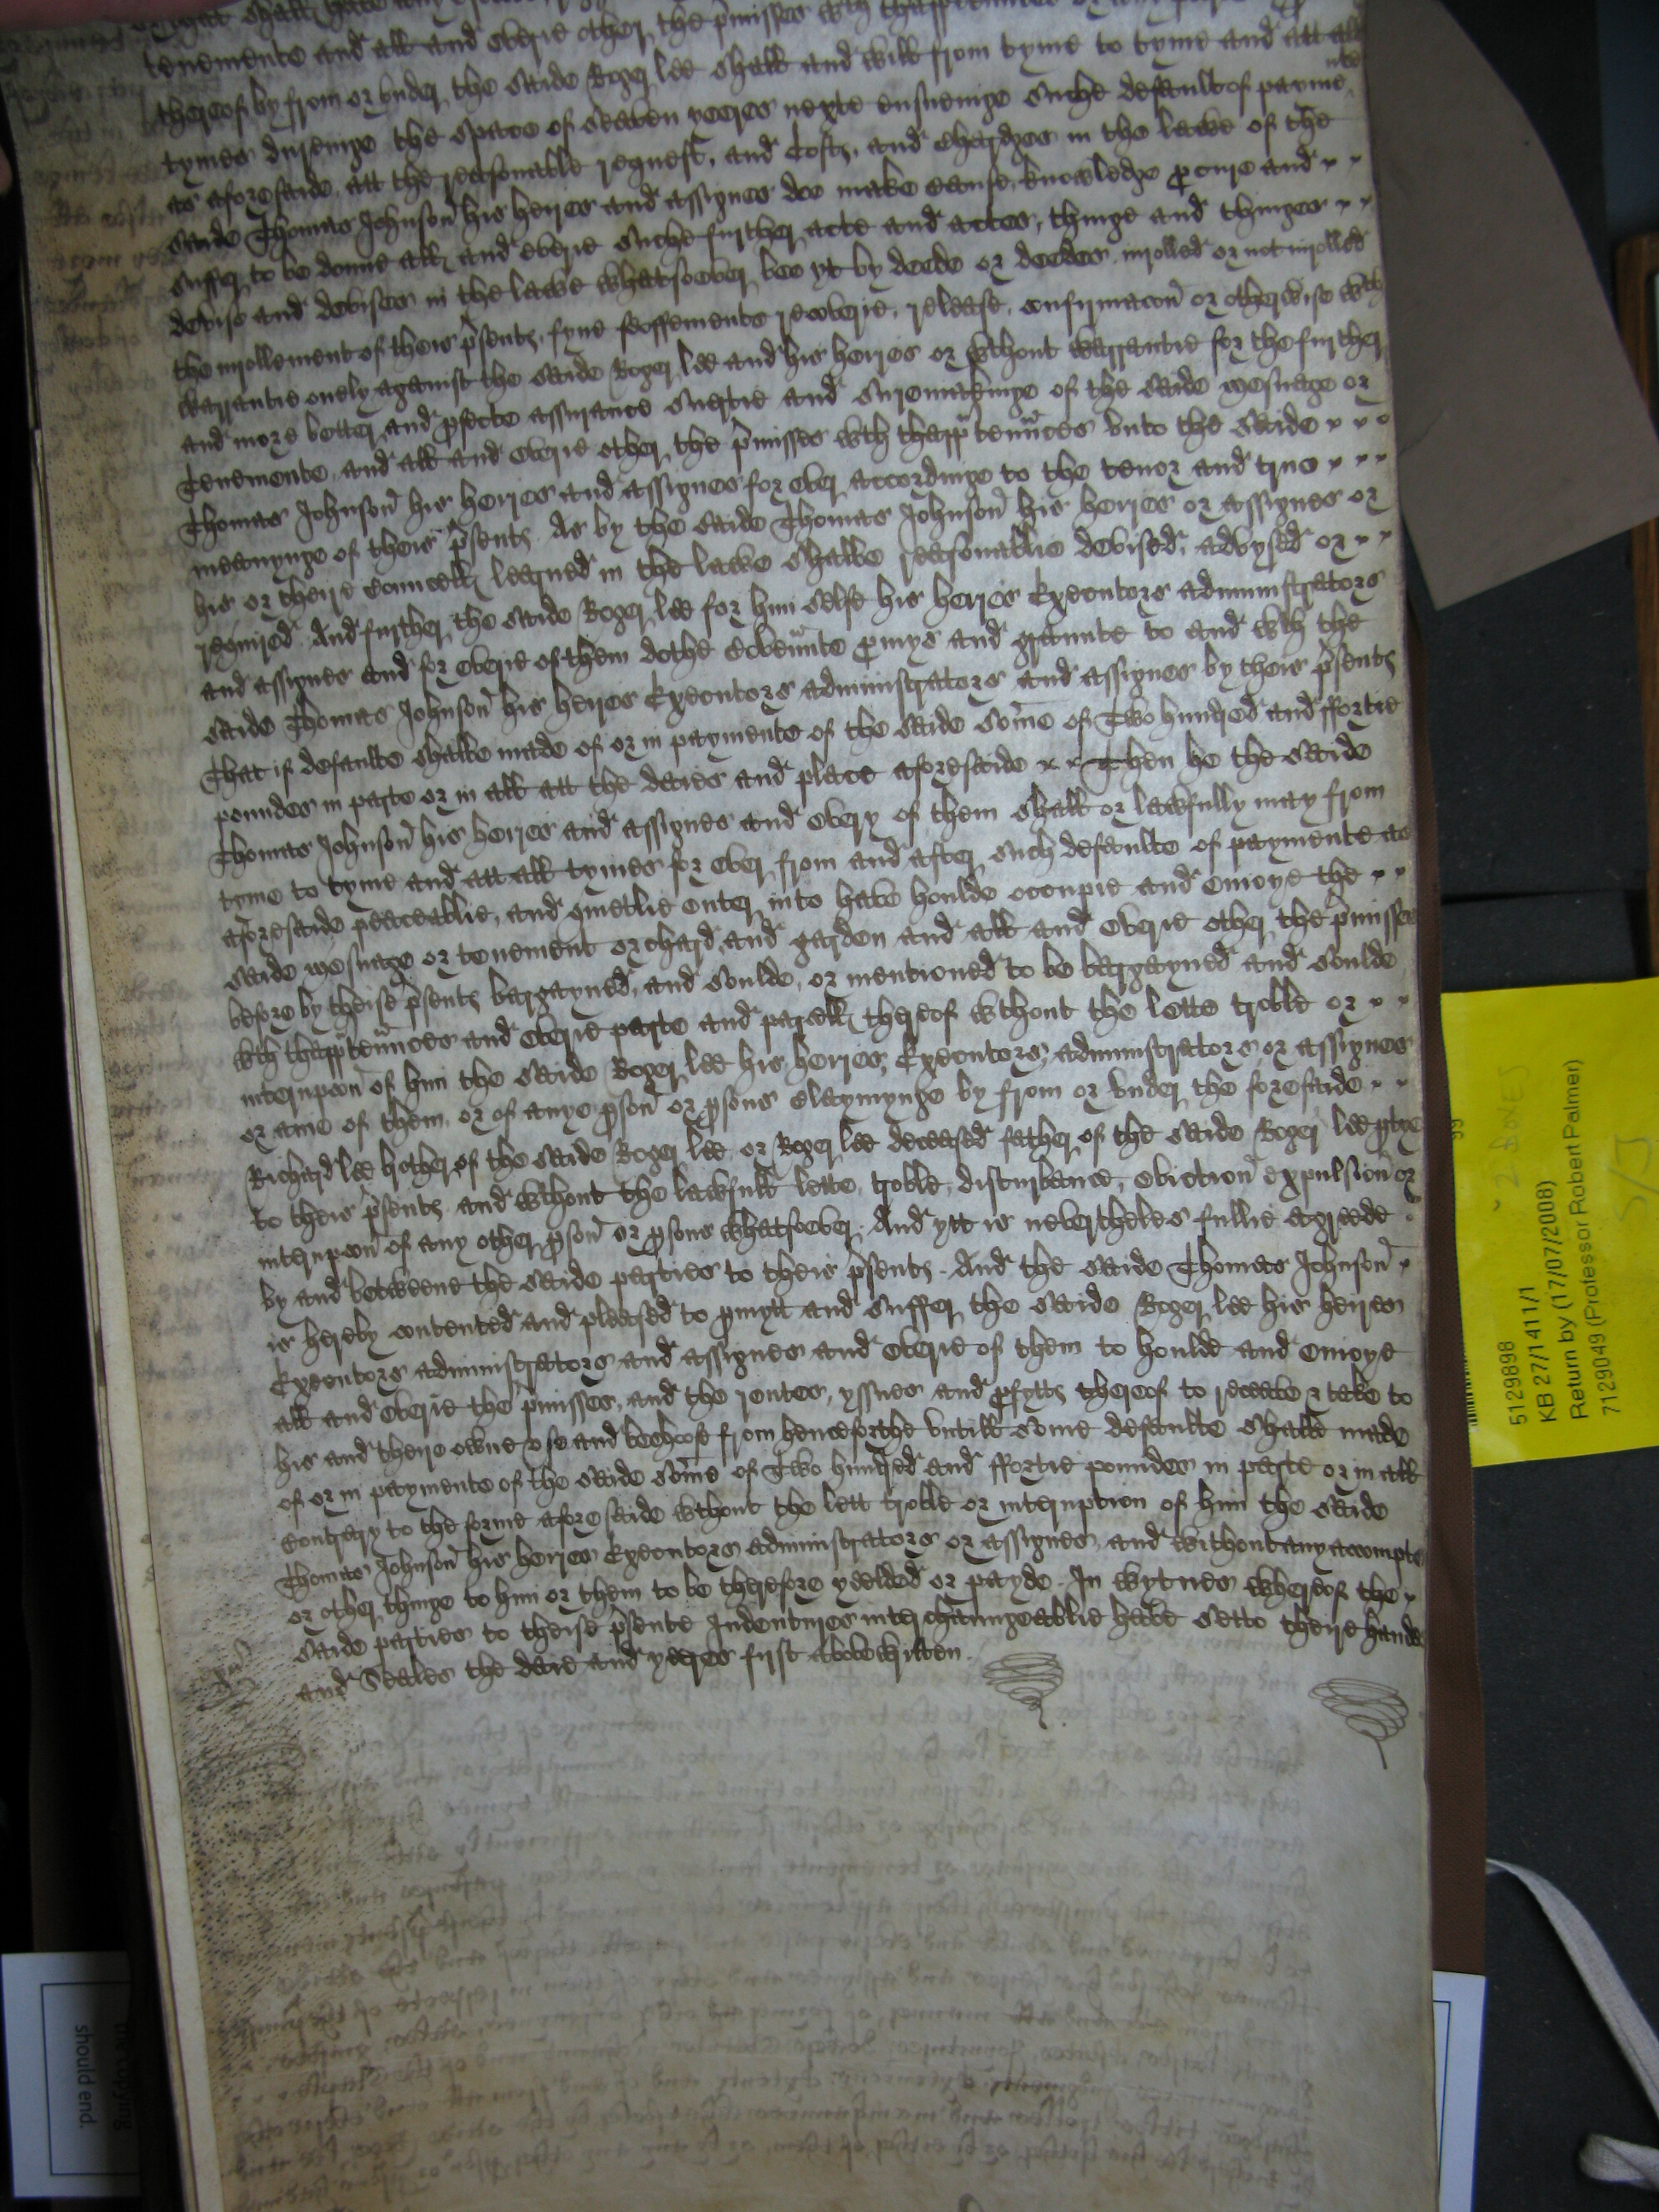 tenemente and all and everie other the p'misses wth thapp
thereof by from or under the saide Roger Lee shall and will from tyme to tyme and att all
tymes duringe the space of seaven yeeres nexte ensueinge suche defaulte of payme nte
as aforesaide, att the reasonable request, and Costs, and chardges in the lawe of the
saide Thomas Johnson his heires and assignes doe make cause, knowledge p cure and
suffer to be donne all and everie suche further acte and actes, thinge and thinges
devise and devises in the lawe whatsoever bee yt by deede or deedes inrolled or not inrolled
the inrollement of theis p'sents, fyne feoffemente recoverie, release, confirmacon or otherwise wth
warrantie onely against the saide Roger Lee and his heires or wthout warrantie for the further
and more better and p fecte assurance suertie and suremakinge of the saide mesuage or
Tenemente, and all and everie other the p'misses wth thapp'tennces unto the saide
Thomas Johnson his heires and assignes for ever accordinge to the tenor and true
meanynge of theis p'sents. As by the saide Thomas Johnson his heires or assignes or
his or theire Councell learned in the lawe shalbe reasonablie devised, advysed or
required. And further the saide Roger Lee for him selfe his heires Executors administrators
and assignes and for everie of them dothe covennte p mys and graunte to and wth the
saide Thomas Johnson his heires Executors administrators and assignes by theis p'sents
That if defaulte shalbe made of or in paymente of the saide some of Two hundred and ffortie
poundes in parte or in all att the daies and place aforesaide Then he the saide
Thomas Johnson his heires and assignes and every of them shall or lawfully may from
tyme to tyme and att all tymes for ever from and after such defaulte of paymente as
aforesaide peaceablie, and quietlie enter into have houlde occupie and enioye the
saide mesuage or tenement orchard, and garden and all and everie other the p'misses
before by theise p'sents bargayned, and soulde, or mentioned to be bargayned and soulde
wth thapp'tennces and everie parte and parcell thereof wthout the lette troble or
interupcon of him the saide Roger Lee his heires, Executors, administrators or assignes
or anie of them, or of anye p son or p sons claymynge by from or under the foresaide
Richard Lee brother of the saide Roger Lee, or Roger Lee deceased father of the saide Roger Lee ptie
to theis p'sents and wthout the lawfull lette, troble, disturbance, eviction expulsion or
interupcon of any other p son or p sons whatsoever. And ytt is neverthelesse fullie agreede
by and betweene the saide parties to theis p'sents. And the saide Thomas Johnson
is hereby contented and pleased to p mytt and suffer the saide Roger Lee his heires
Executors administrators and assignes and everie of them to houlde and enioye
all and everie the p'misses, and the rentes, yssues and p fytts thereof to receave & take to
his and theire owne use and behoofe from henceforthe untill some defaulte shalbe made
of or in paymente of the saide some of Two hundred and ffortie poundes in parte or in all
contrary to the forme aforesaide wthout the lett troble or interuption of him the saide
Thomas Johnson his heires Executors administrators or assignes, and without any accompte
or other thinge to him or them to be therefore yeelded or payde. In wytnes whereof the
saide parties to theise p'sente Indentures interchaungeablie have sette theire hands
and Seales the daie and yeres first above written.
5129898
KB 27/1411/1
Return by (17/07/2008)
7129049 (Professor Robert Palmer)
2 BOXES
S/J
should end.